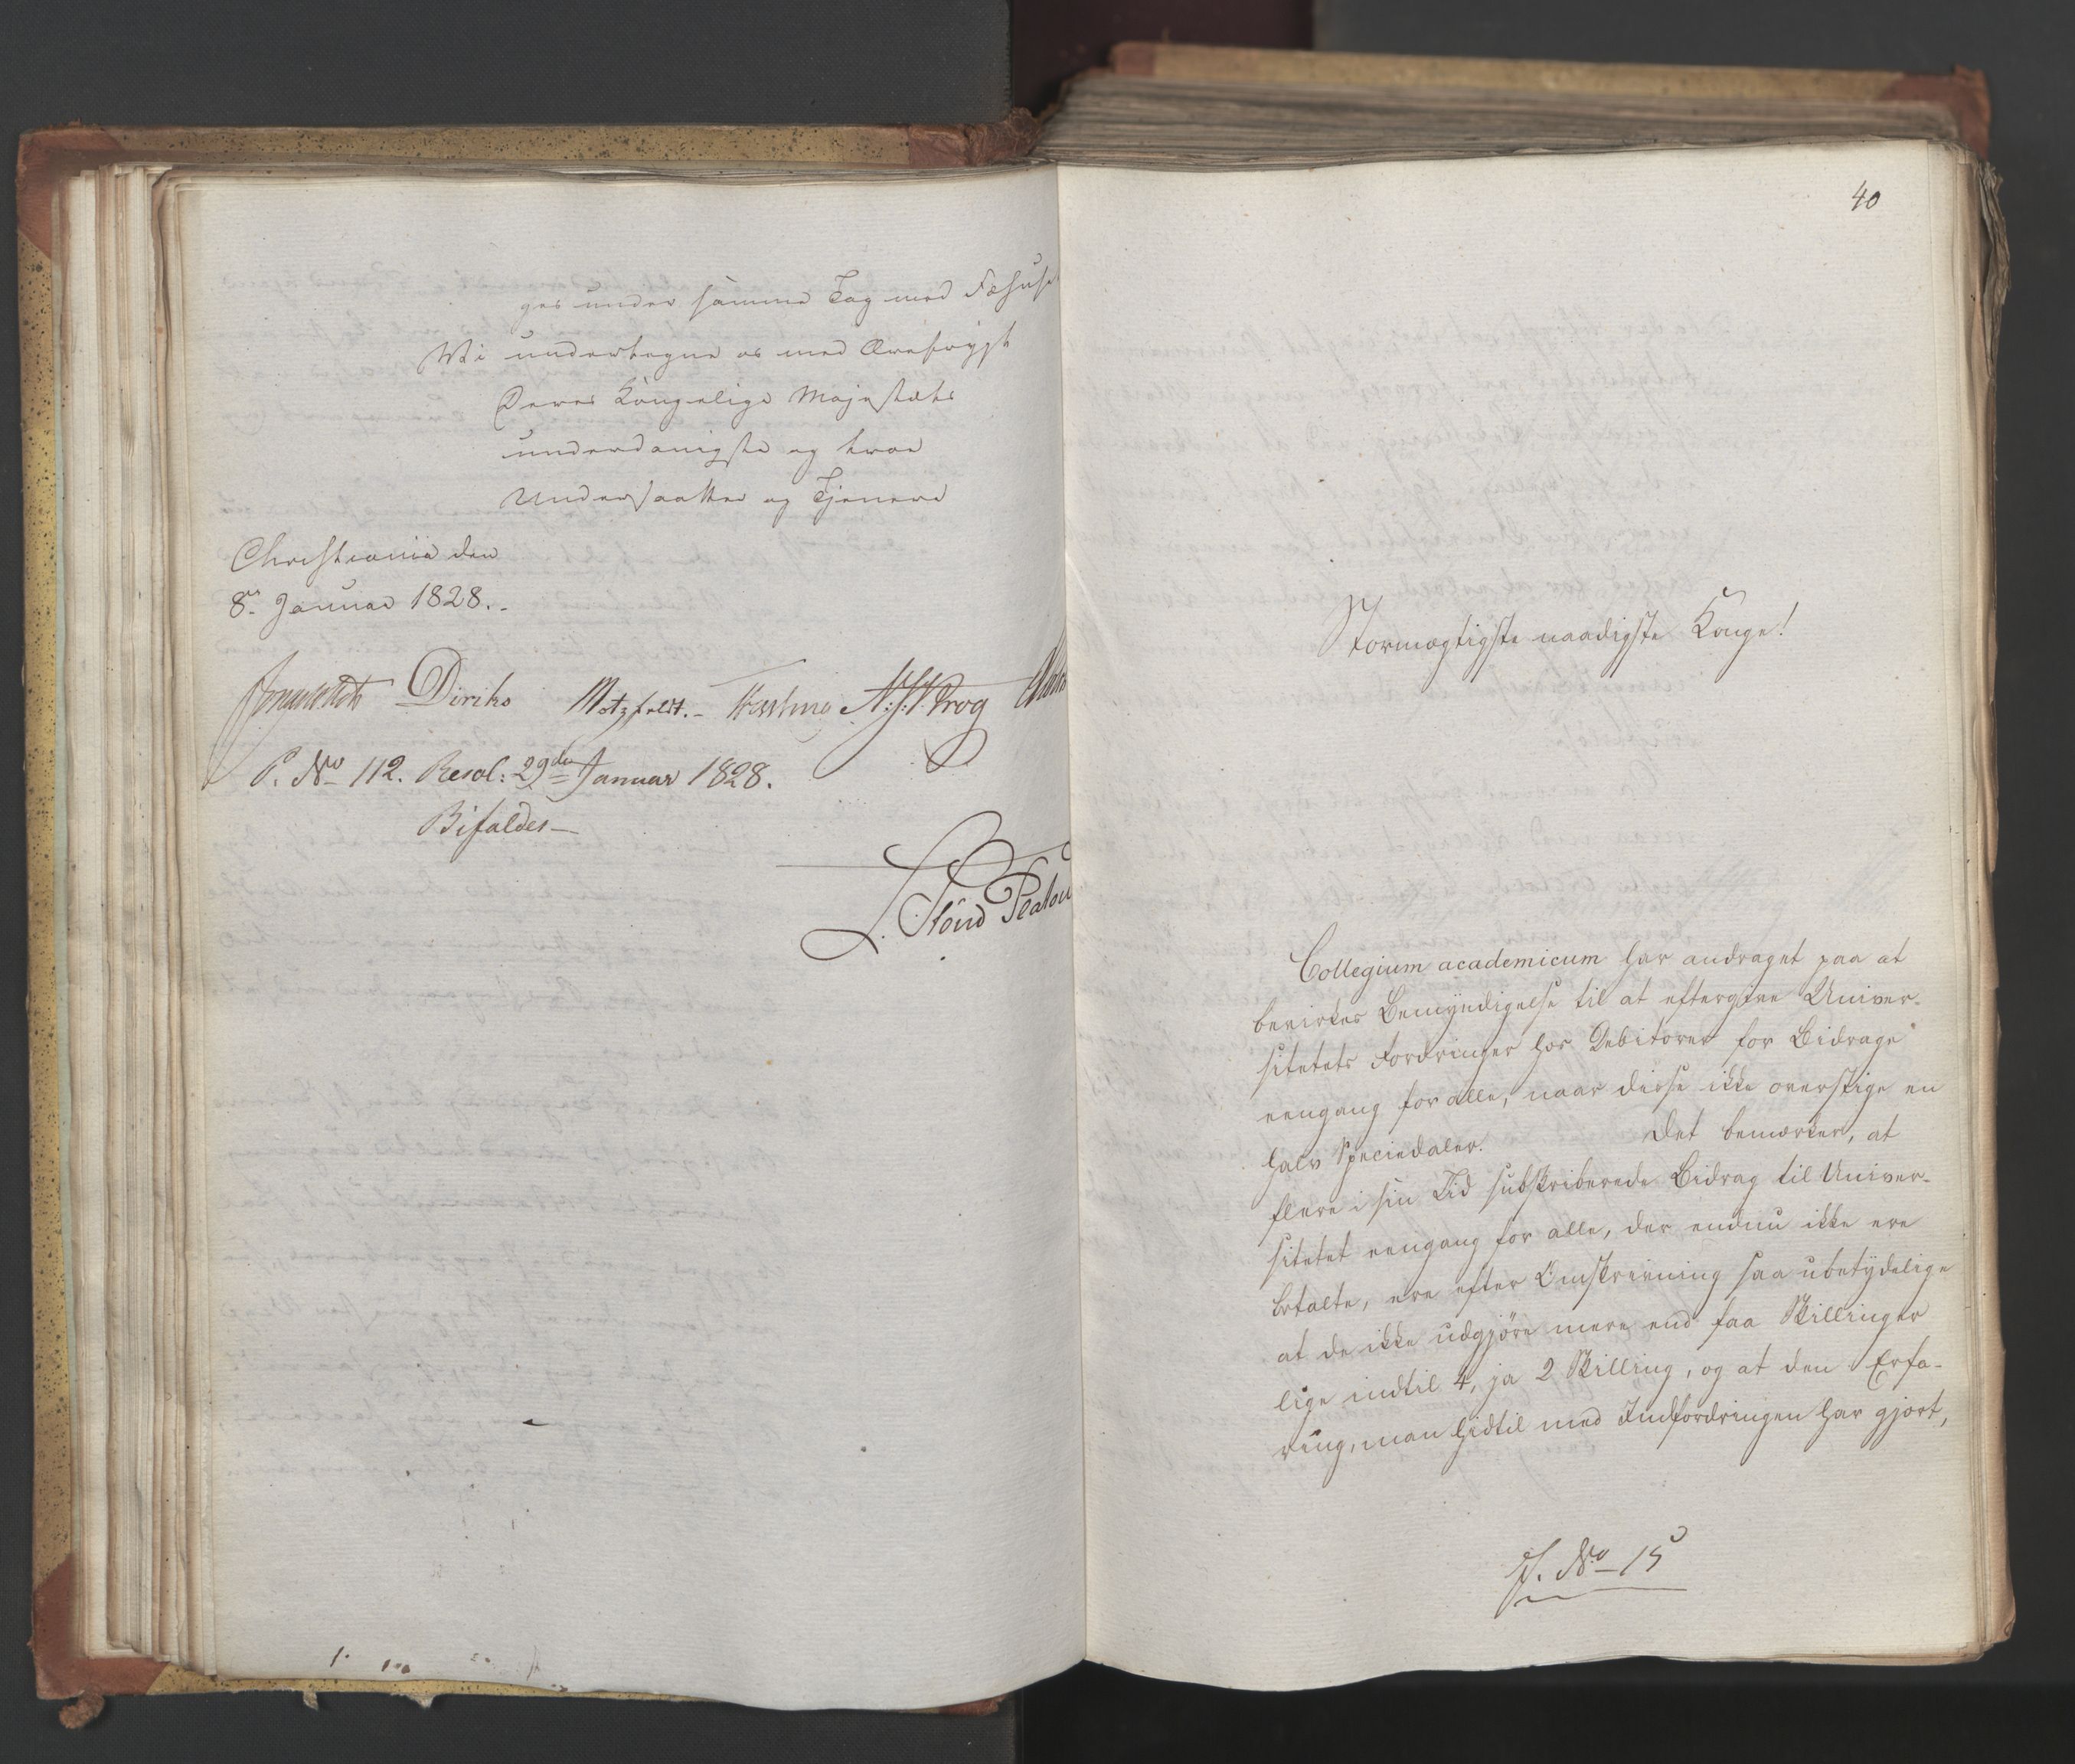 ges under samme Tag med Fæhuse
Vi undertegne os med Ærefrygt
Deres Kongelige Majestæts
underdanigste og troe
Undersaatter og Tjenere
Christiania den
8de Januar 1828.
Diriks Motzfeldt. Krog
P. No 112. Resol: 29de Januar 1828.
Bifaldes
L. Stoud Platou
40
Stormægtigste naadigste Konge!
Collegium academicum har andraget paa at
bevirkes Bemyndigelse til at eftergive Univer-
sitetets Fordringer hos Debitorer for Bidrage
eengang for alle, naar disse ikke overstige en
halv Speciedaler. Det bemærkes, at
flere i sin Tid subskriberede Bidrag til Univer-
sitetet eengang for alle, der endnu ikke ere
betalte, ere efter Omskrivning saa ubetydelige
at de ikke udgjøre mere end faa Skillinger
lige indtil 4, ja 2 Skilling, og at den Erfa-
ring, man hidtil med Indfordringen har gjort,
No 15